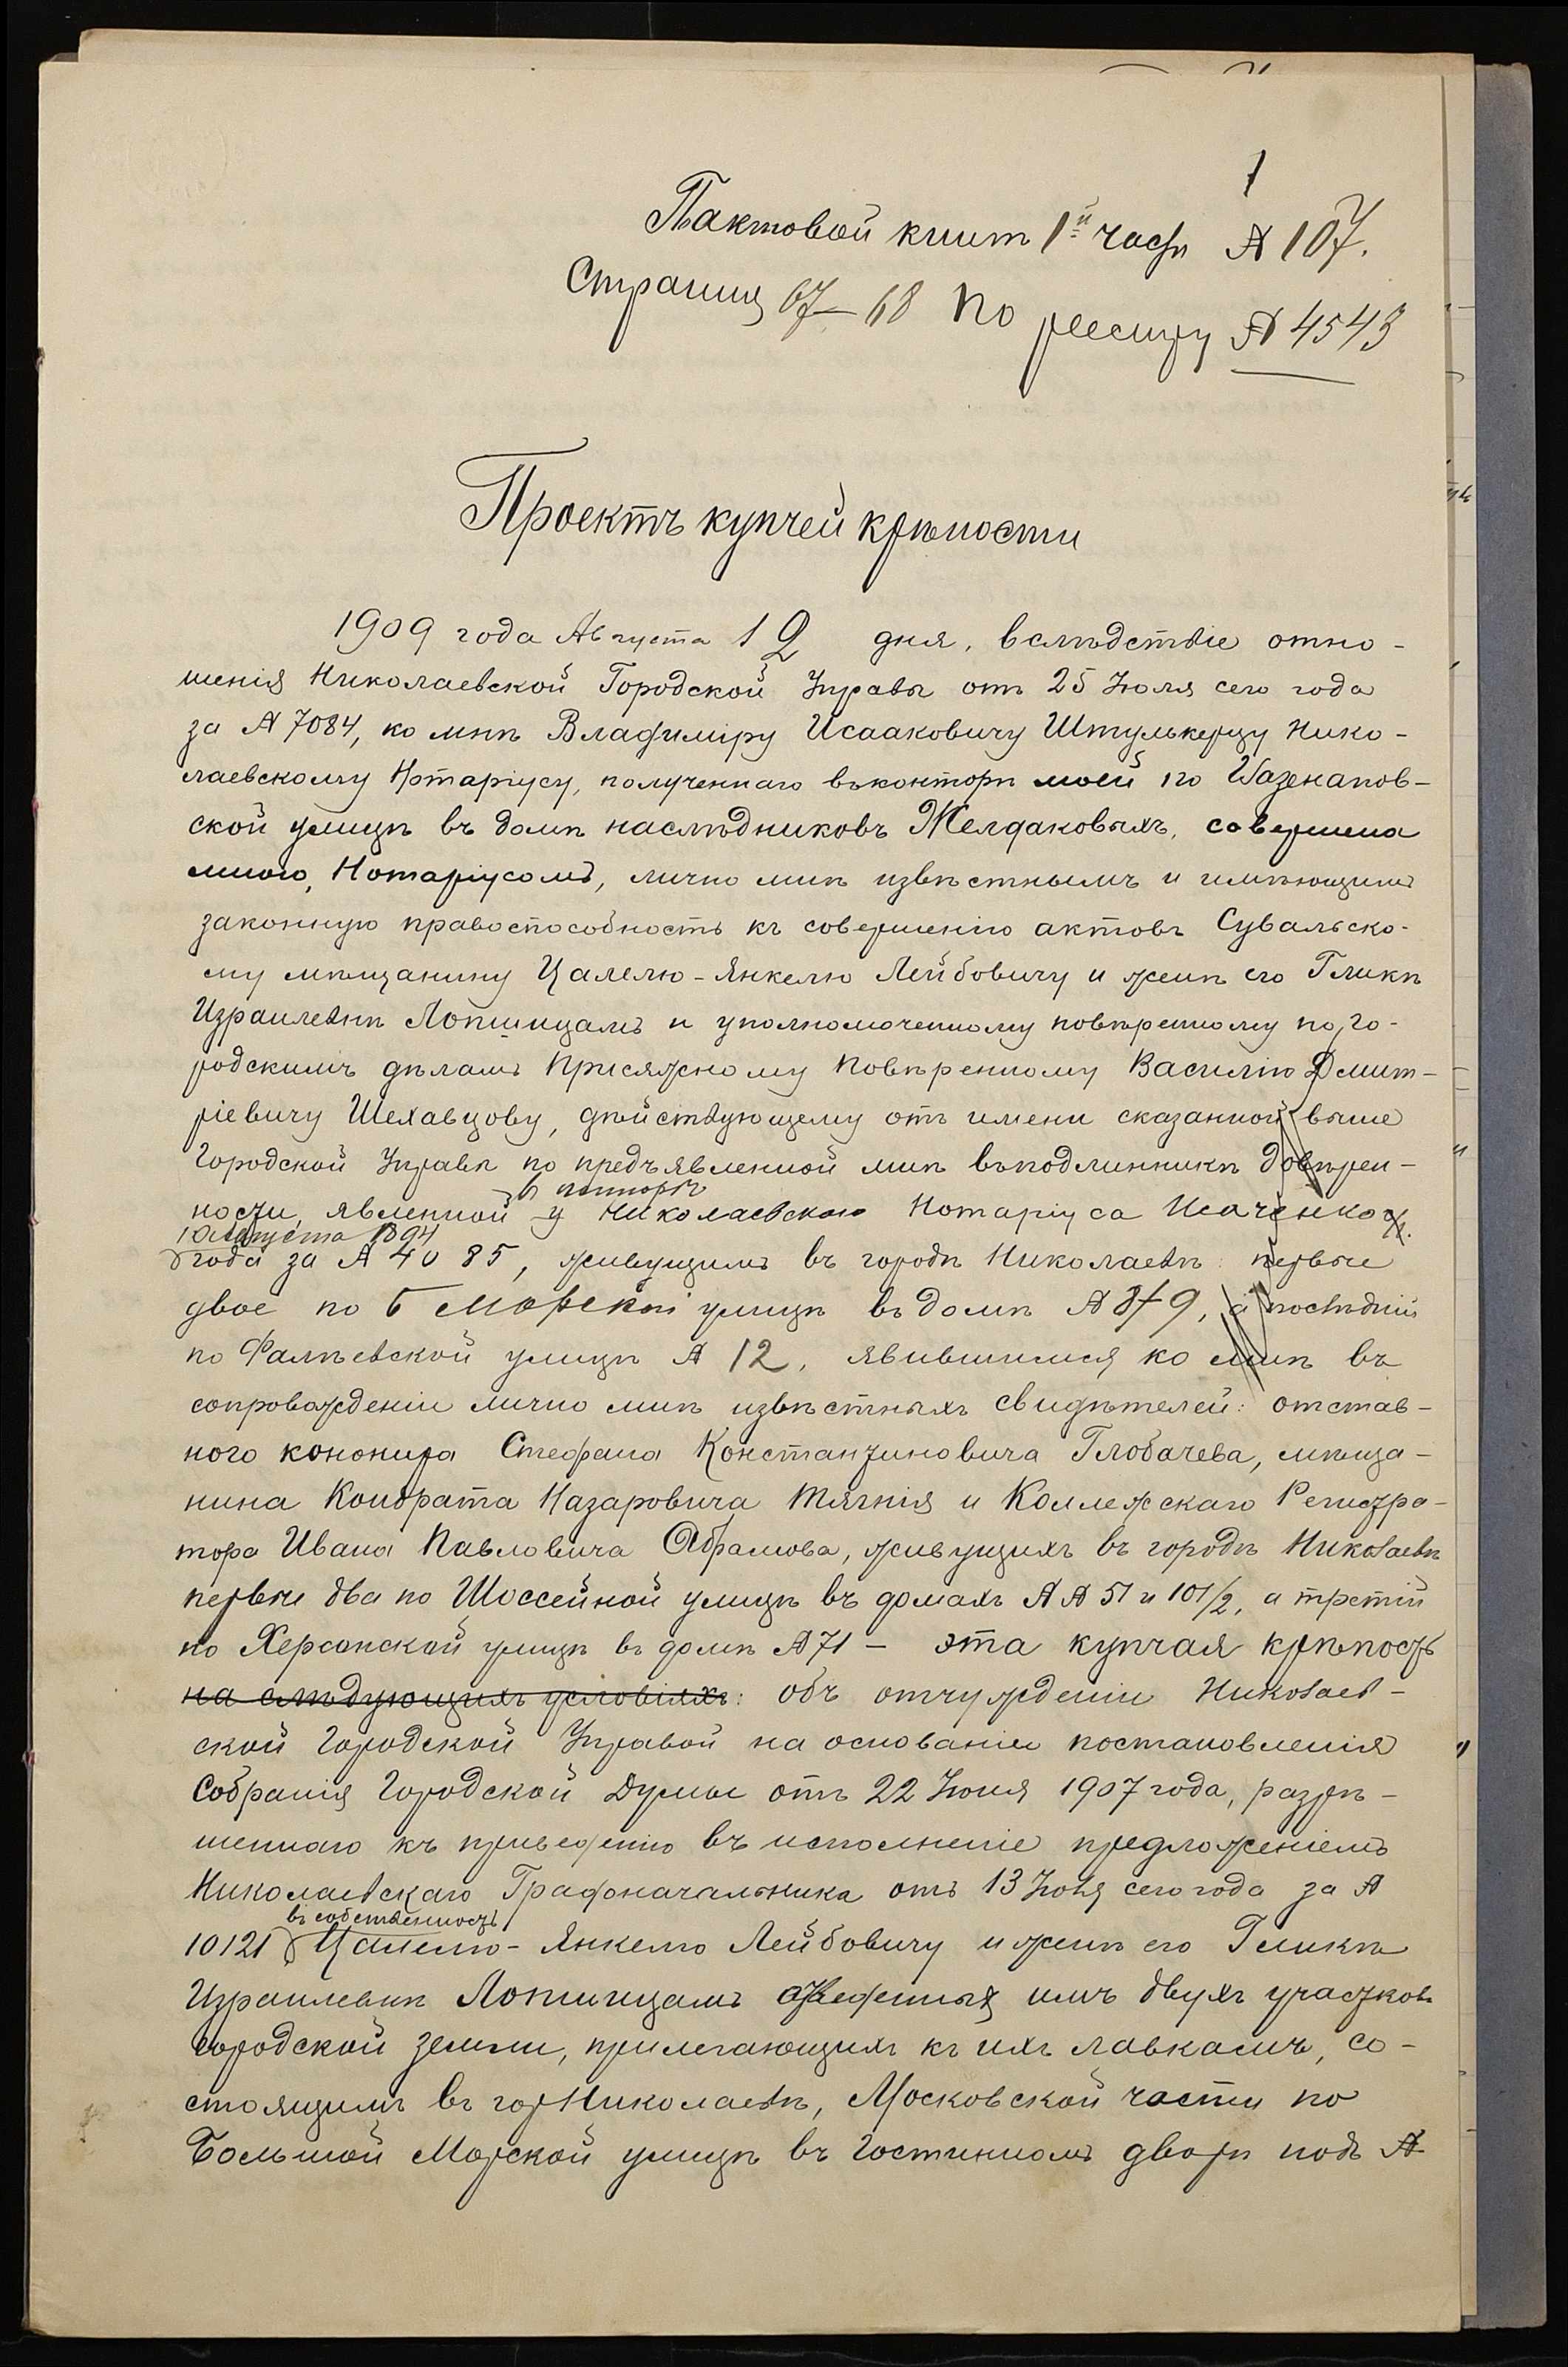 1
По актовой книгѣ 1й части № 107.
Страница 67-68 По реестру № 4543
Проектъ купчей крѣпости
1909 года Августа 12 дня, вслѣдствіе отно-
шенія Николаевской Городской Управы отъ 25 Іюля сего года
за № 7084, ко мнѣ Владиміру Исааковичу Штулькерцу Нико-
лаевскому Нотаріусу, полученнаго въ конторѣ моей по Глазенапов-
ской улицѣ въ домѣ наслѣдниковъ Желдаковыхъ, совершена
мною, Нотаріусомъ, лично мнѣ извѣстнымъ и имѣющимъ
законную правоспособность къ совершенію актовъ Сувальско-
му мѣщанину Цалелю-Янкелю Лейбовичу и женѣ его Гликѣ
Израилевнѣ Лопшицамъ и уполномоченному повѣренному по го-
родскимъ дѣламъ Присяжному Повѣренному Василію Дмит-
ріевичу Шехавцову, дѣйствующему отъ имени сказанной выше
Городской Управы по предъявленной мнѣ въ подлинникѣ довѣрен-
в конторѣ
ности, явленной у Николаевскаго Нотаріуса Исаченко
10 Августа 1894
года за № 4085, живущимъ въ городѣ Николаевѣ: первые
двое по Б Морской улицѣ въ домѣ № 9, а послѣдній
по Фалѣевской улицѣ № 12, явившимися ко мнѣ въ
сопровожденіи лично мнѣ извѣстныхъ свидѣтелей: отстав-
ного кононира Стефана Константиновича Глобачева, мѣща-
нина Кондрата Назаровича Тягнія и Коллежскаго Регистра-
тора Ивана Павловича Абрамова, живущихъ въ городѣ Николаевѣ
первые два по Шоссейной улицѣ въ домахъ №№ 51 и 101/2, а третій
по Херсонской улицѣ въ домѣ № 71 - эта купчая крѣпость
на слѣдующихъ условіяхъ: объ отчужденіи Николаев-
ской Городской Управой на основаніи постановленія
Собранія Городской Думы отъ 22 Іюня 1907 года, разрѣ-
шеннаго къ приведенію въ исполненіе предложеніемъ
Николаевскаго Градоначальника отъ 13 Іюня сего года за №
въ собственность
10121 Цалелю-Янкелю Лейбовичу и женѣ его Гликѣ
Израилевнѣ Лопшицамъ отведенныхъ имъ двухъ участковъ
городской земли, прилегающихъ къ ихъ лавкамъ, со-
стоящимъ въ гор Николаевѣ, Московской части по
Большой Морской улицѣ въ Гостинномъ дворѣ подъ №